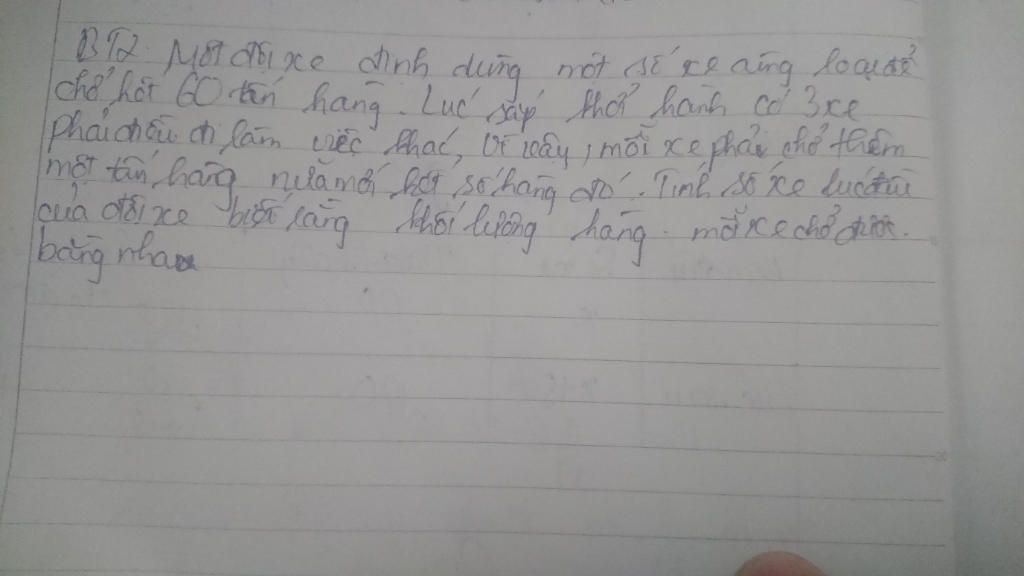 BT2. Một đội xe định dùng một số xe cùng loại để
chở hết 60 tấn hàng. Lúc sắp khởi hành có 3 xe
phải điều đi làm việc khác, Vì vậy, mỗi xe phải chở thêm
một tấn hàng nữa mới hết số hàng đó. Tính số xe lúc đầu
của đội xe biết rằng khối lượng hàng mỗi xe chở được
bằng nhau